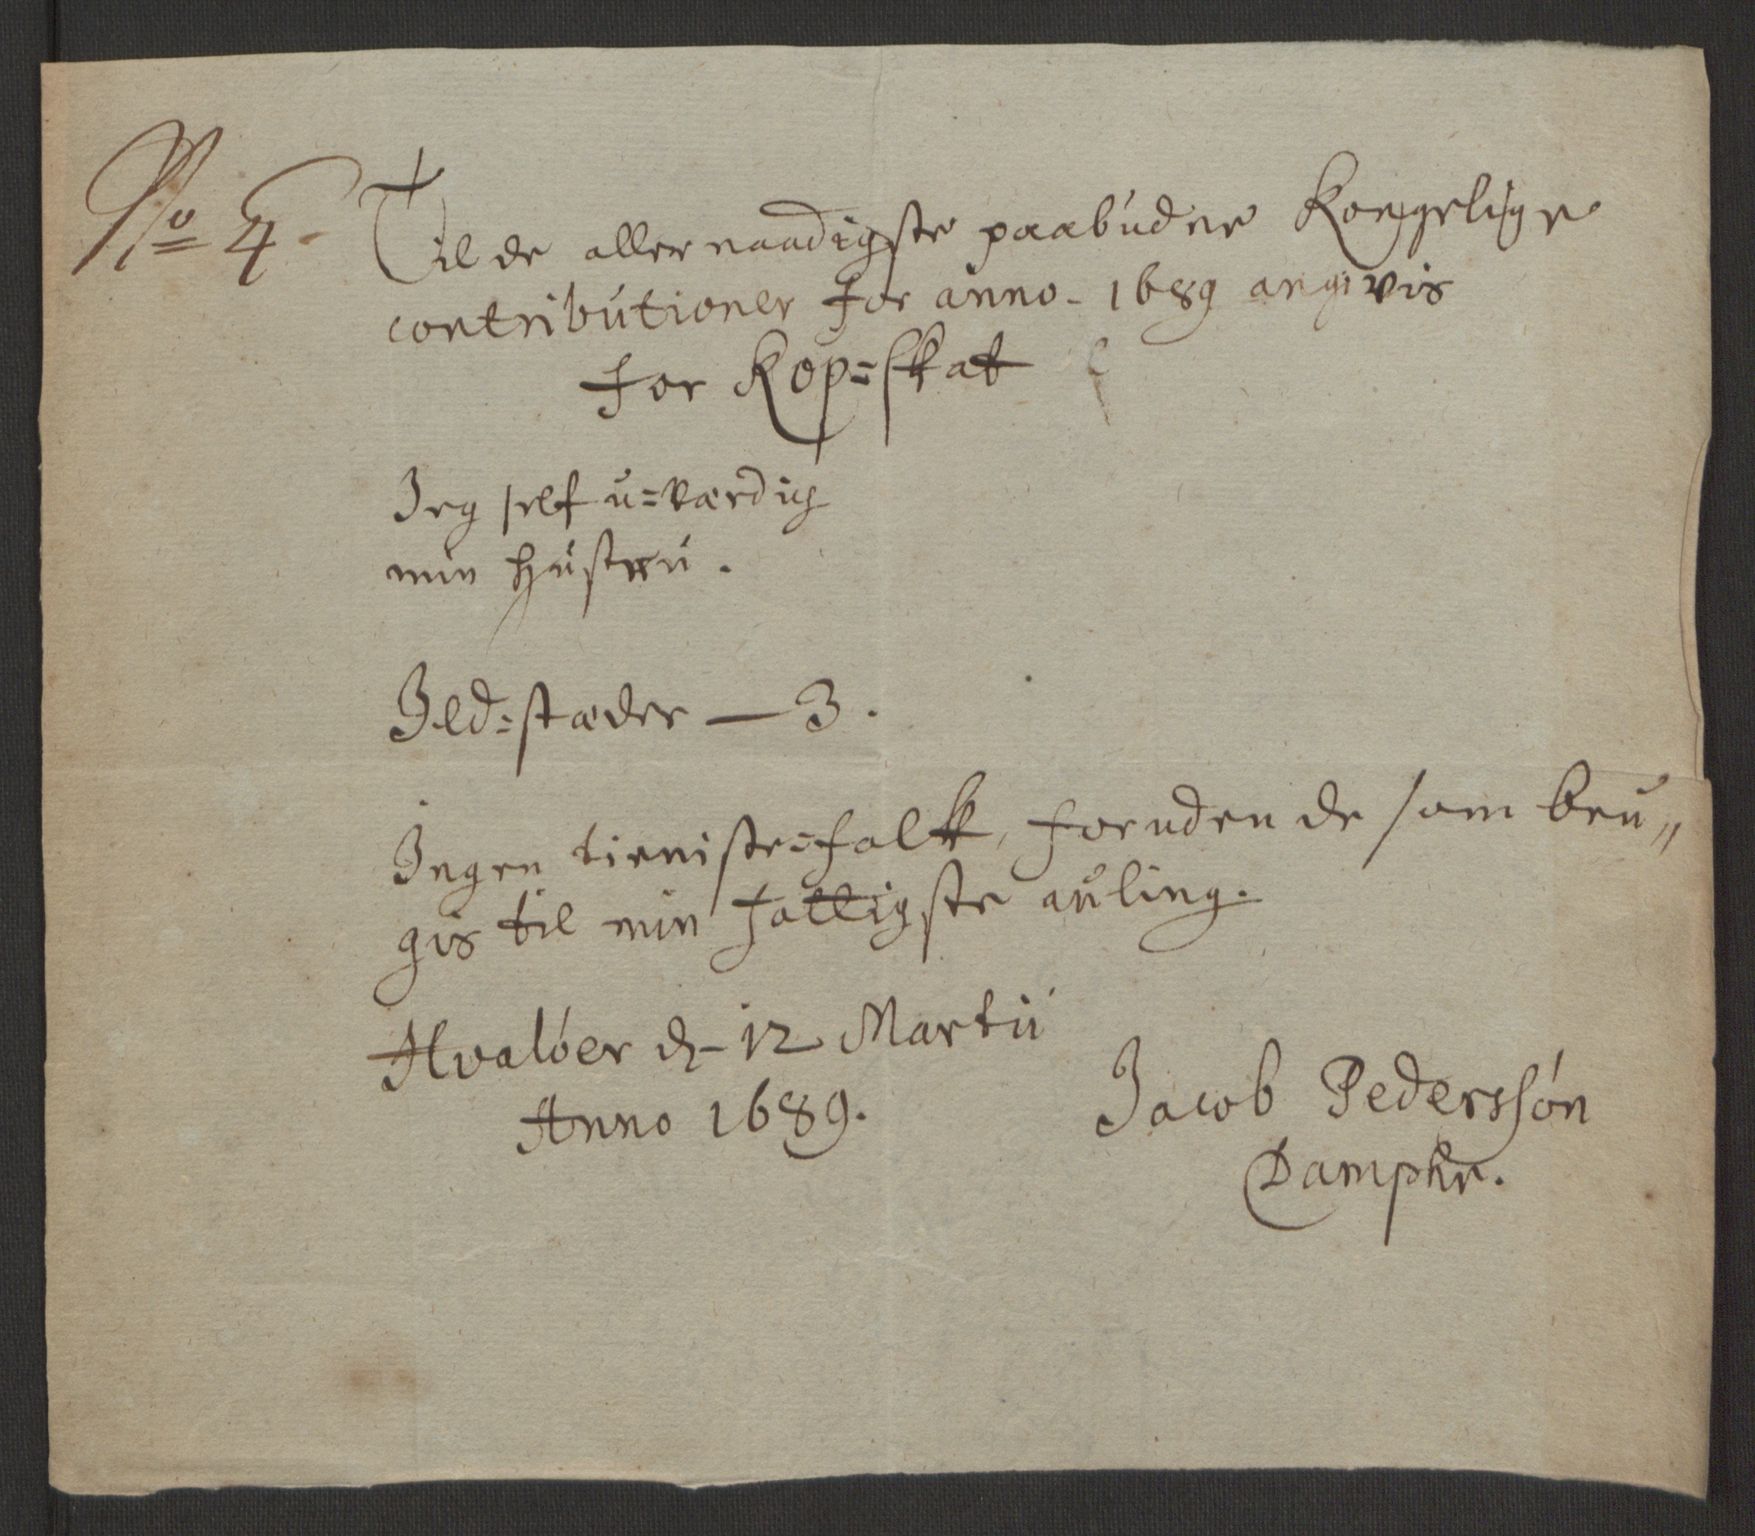 No 4.
Til de allernaadigste paabudne Kongelige
contributioner for anno - 1689 angivis
for Kop=skat
Jeg self u=værdig
min hustru.
Ild=stæder — 3.
Ingen tieniste=folk, foruden de som bru„
gis til min fattigste auling.
Hvalöer d. 12 Martii
Anno 1689.
Jacob Pederssön
Dampke.